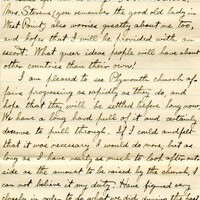 Mrs. Stevens, (you remember the good old lady in
West Point) also worries greatly about me too,
and hopes that I will be provided with an
escort. What queer ideas people will have about
other countries than their own!
I am pleased to see Plymouth church af-
fairs progressing as rapidly as they do, and
hope that they will be settled before long now.
We have a long hard pull of it and certainly
deserve to pull through. If I could and felt
that it was necessary I would do more, but as
long as I have nearly as much to look after out-
side as the amount to be raised by the church, I
can not believe it my duty. Have figured very
closely in order to do what we did during the last